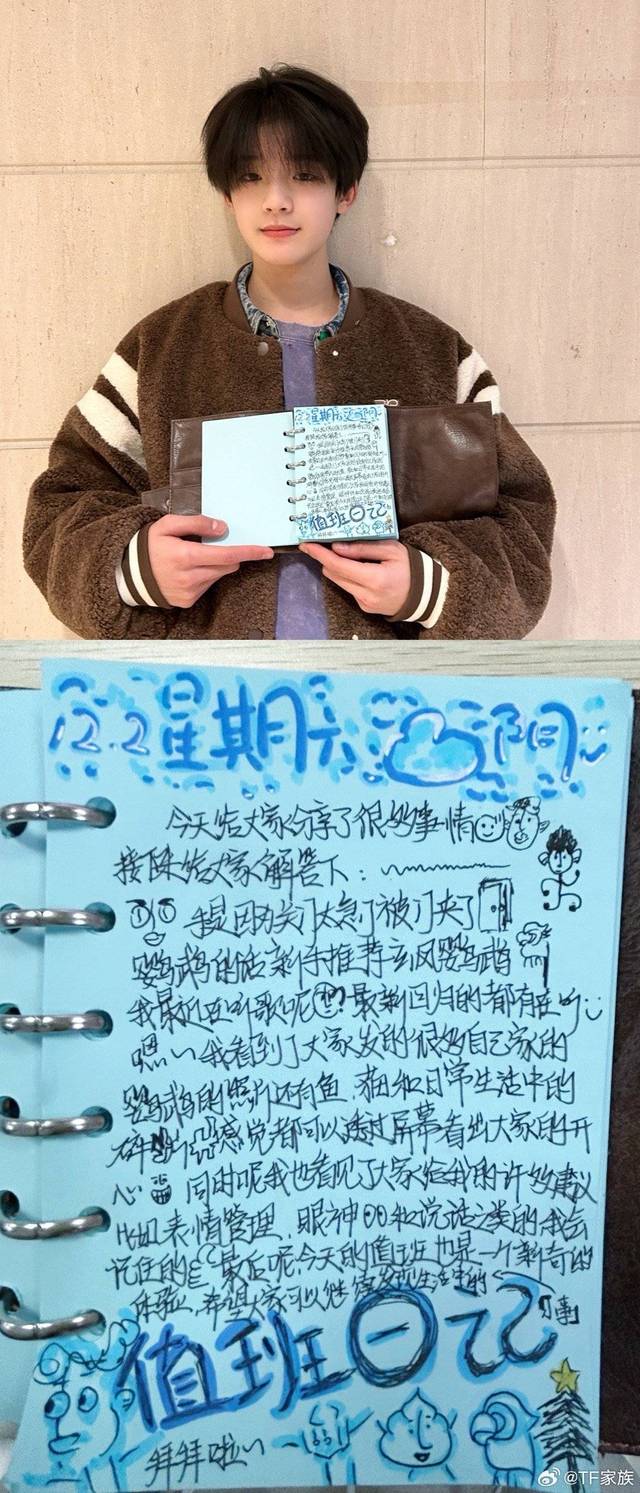 星期六 阴
值班日记
12.2 星期六 阴
今天给大家分享了很多事情
接陈给大家解答下：
我是因为关门太急了被门夹了
鹦鹉的话新手推荐玄凤鹦鹉
我最近在听歌呢 最新回归的都有在听
嘿～我看到了大家发的很多自己家的
鹦鹉的照片还有鱼、猫和日常生活中的
碎片 感觉都可以透过屏幕看出大家的开
心 同时呢我也看见了大家给我的许多建议
比如表情管理、眼神 和说话之类的 我会
记住的 最后呢 今天的值班也是一个新奇的
体验，希望大家可以继续发现生活中的
小事
值班日记
拜拜啦～
@TF家族